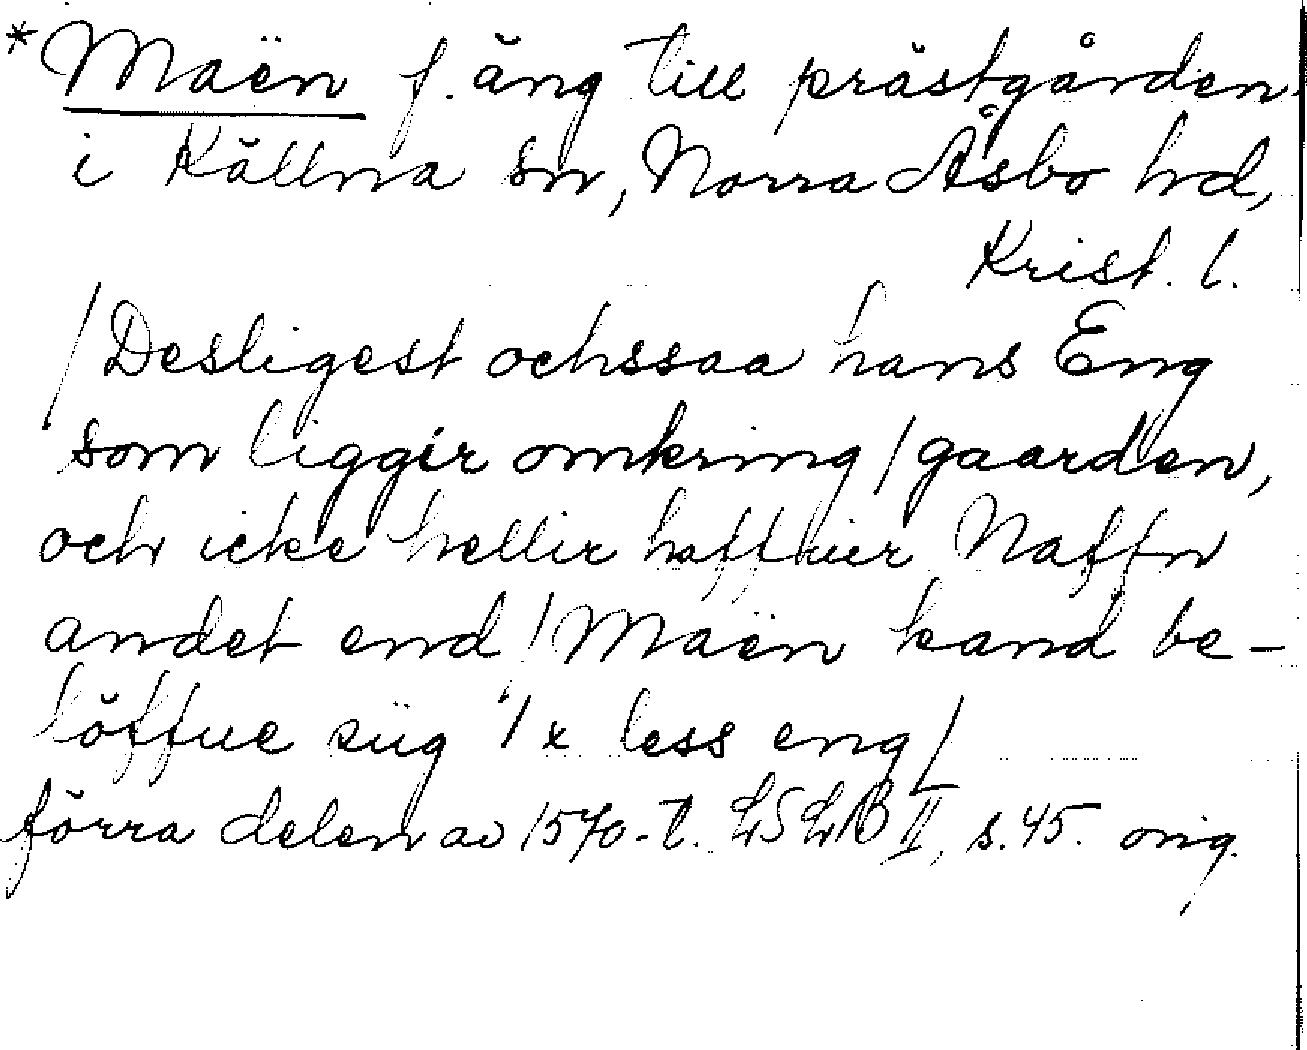 *Maën f. äng till prästgården
i Källna sn, Norra Åsbo hd,
Krist. l.
/Desligest ochssaa hans Eng
som liggir omkring / gaarden,
och icke hellir haffuer Naffn
andet end / Maën kand be-
löffue siig / x less eng/
förra delen av 1570-t. LSLRB II, s. 45. orig.